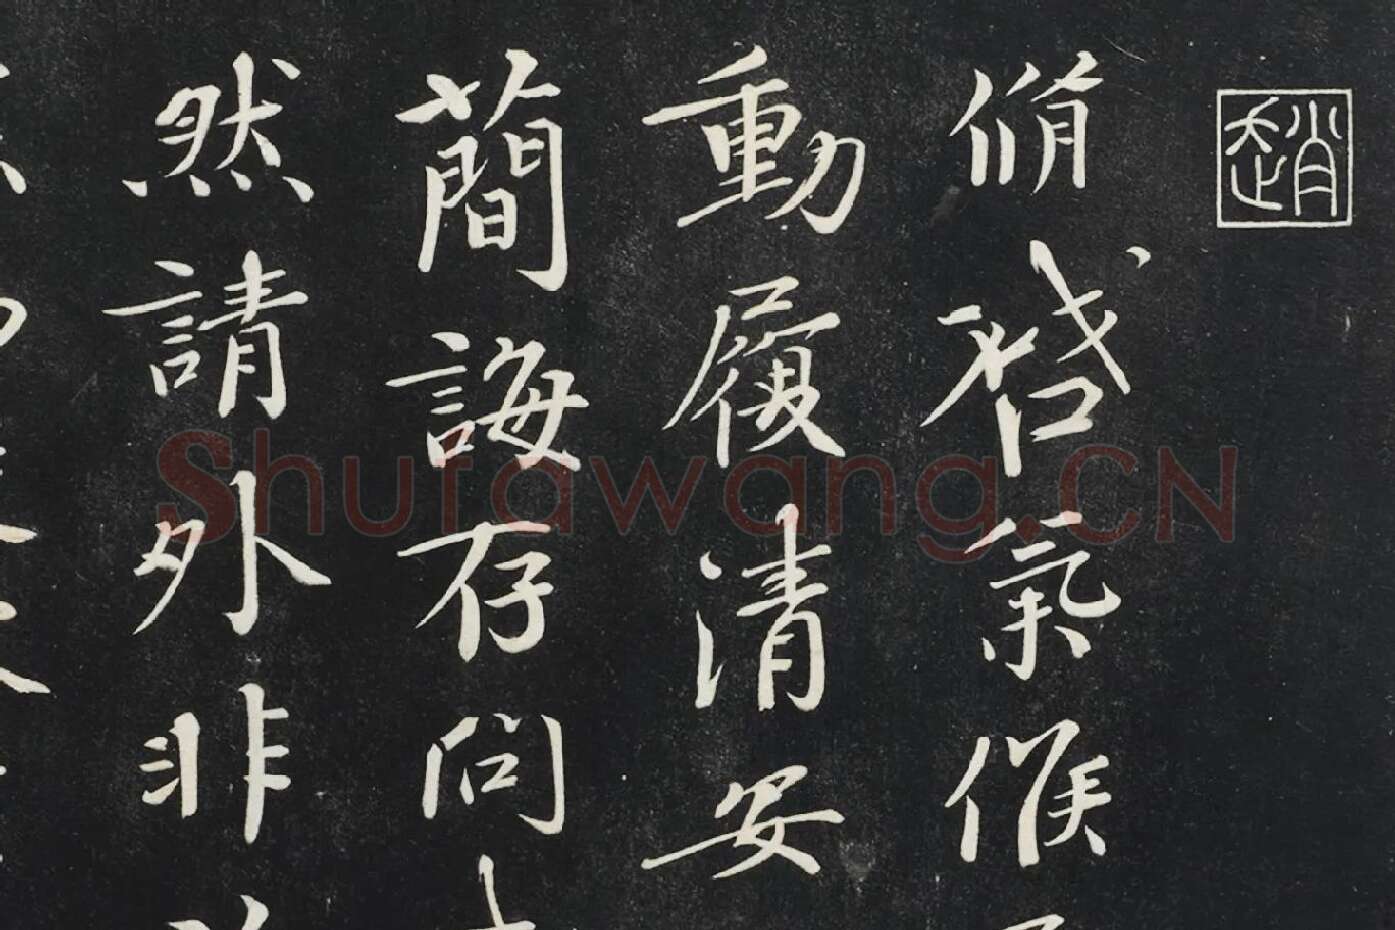 趙
脩啓氣候
動履清安
蕳誨存問
然請外非
Shufawang.CN